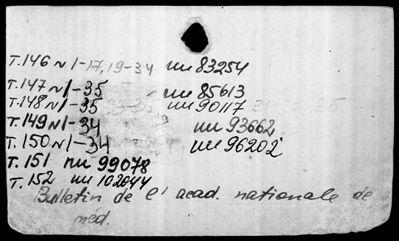 Т.146 N 1-17, 19-34 ин 83254
Т.147 N 1-35 ин 85613
Т.148 N 1-35 ин 90117
Т.149 N 1-34 ин 93662
Т.150 N 1-34 ин 96202
Т.151 ин 99078
Т.152 ин 102044
Bulletin de l'acad. nationale de
med.